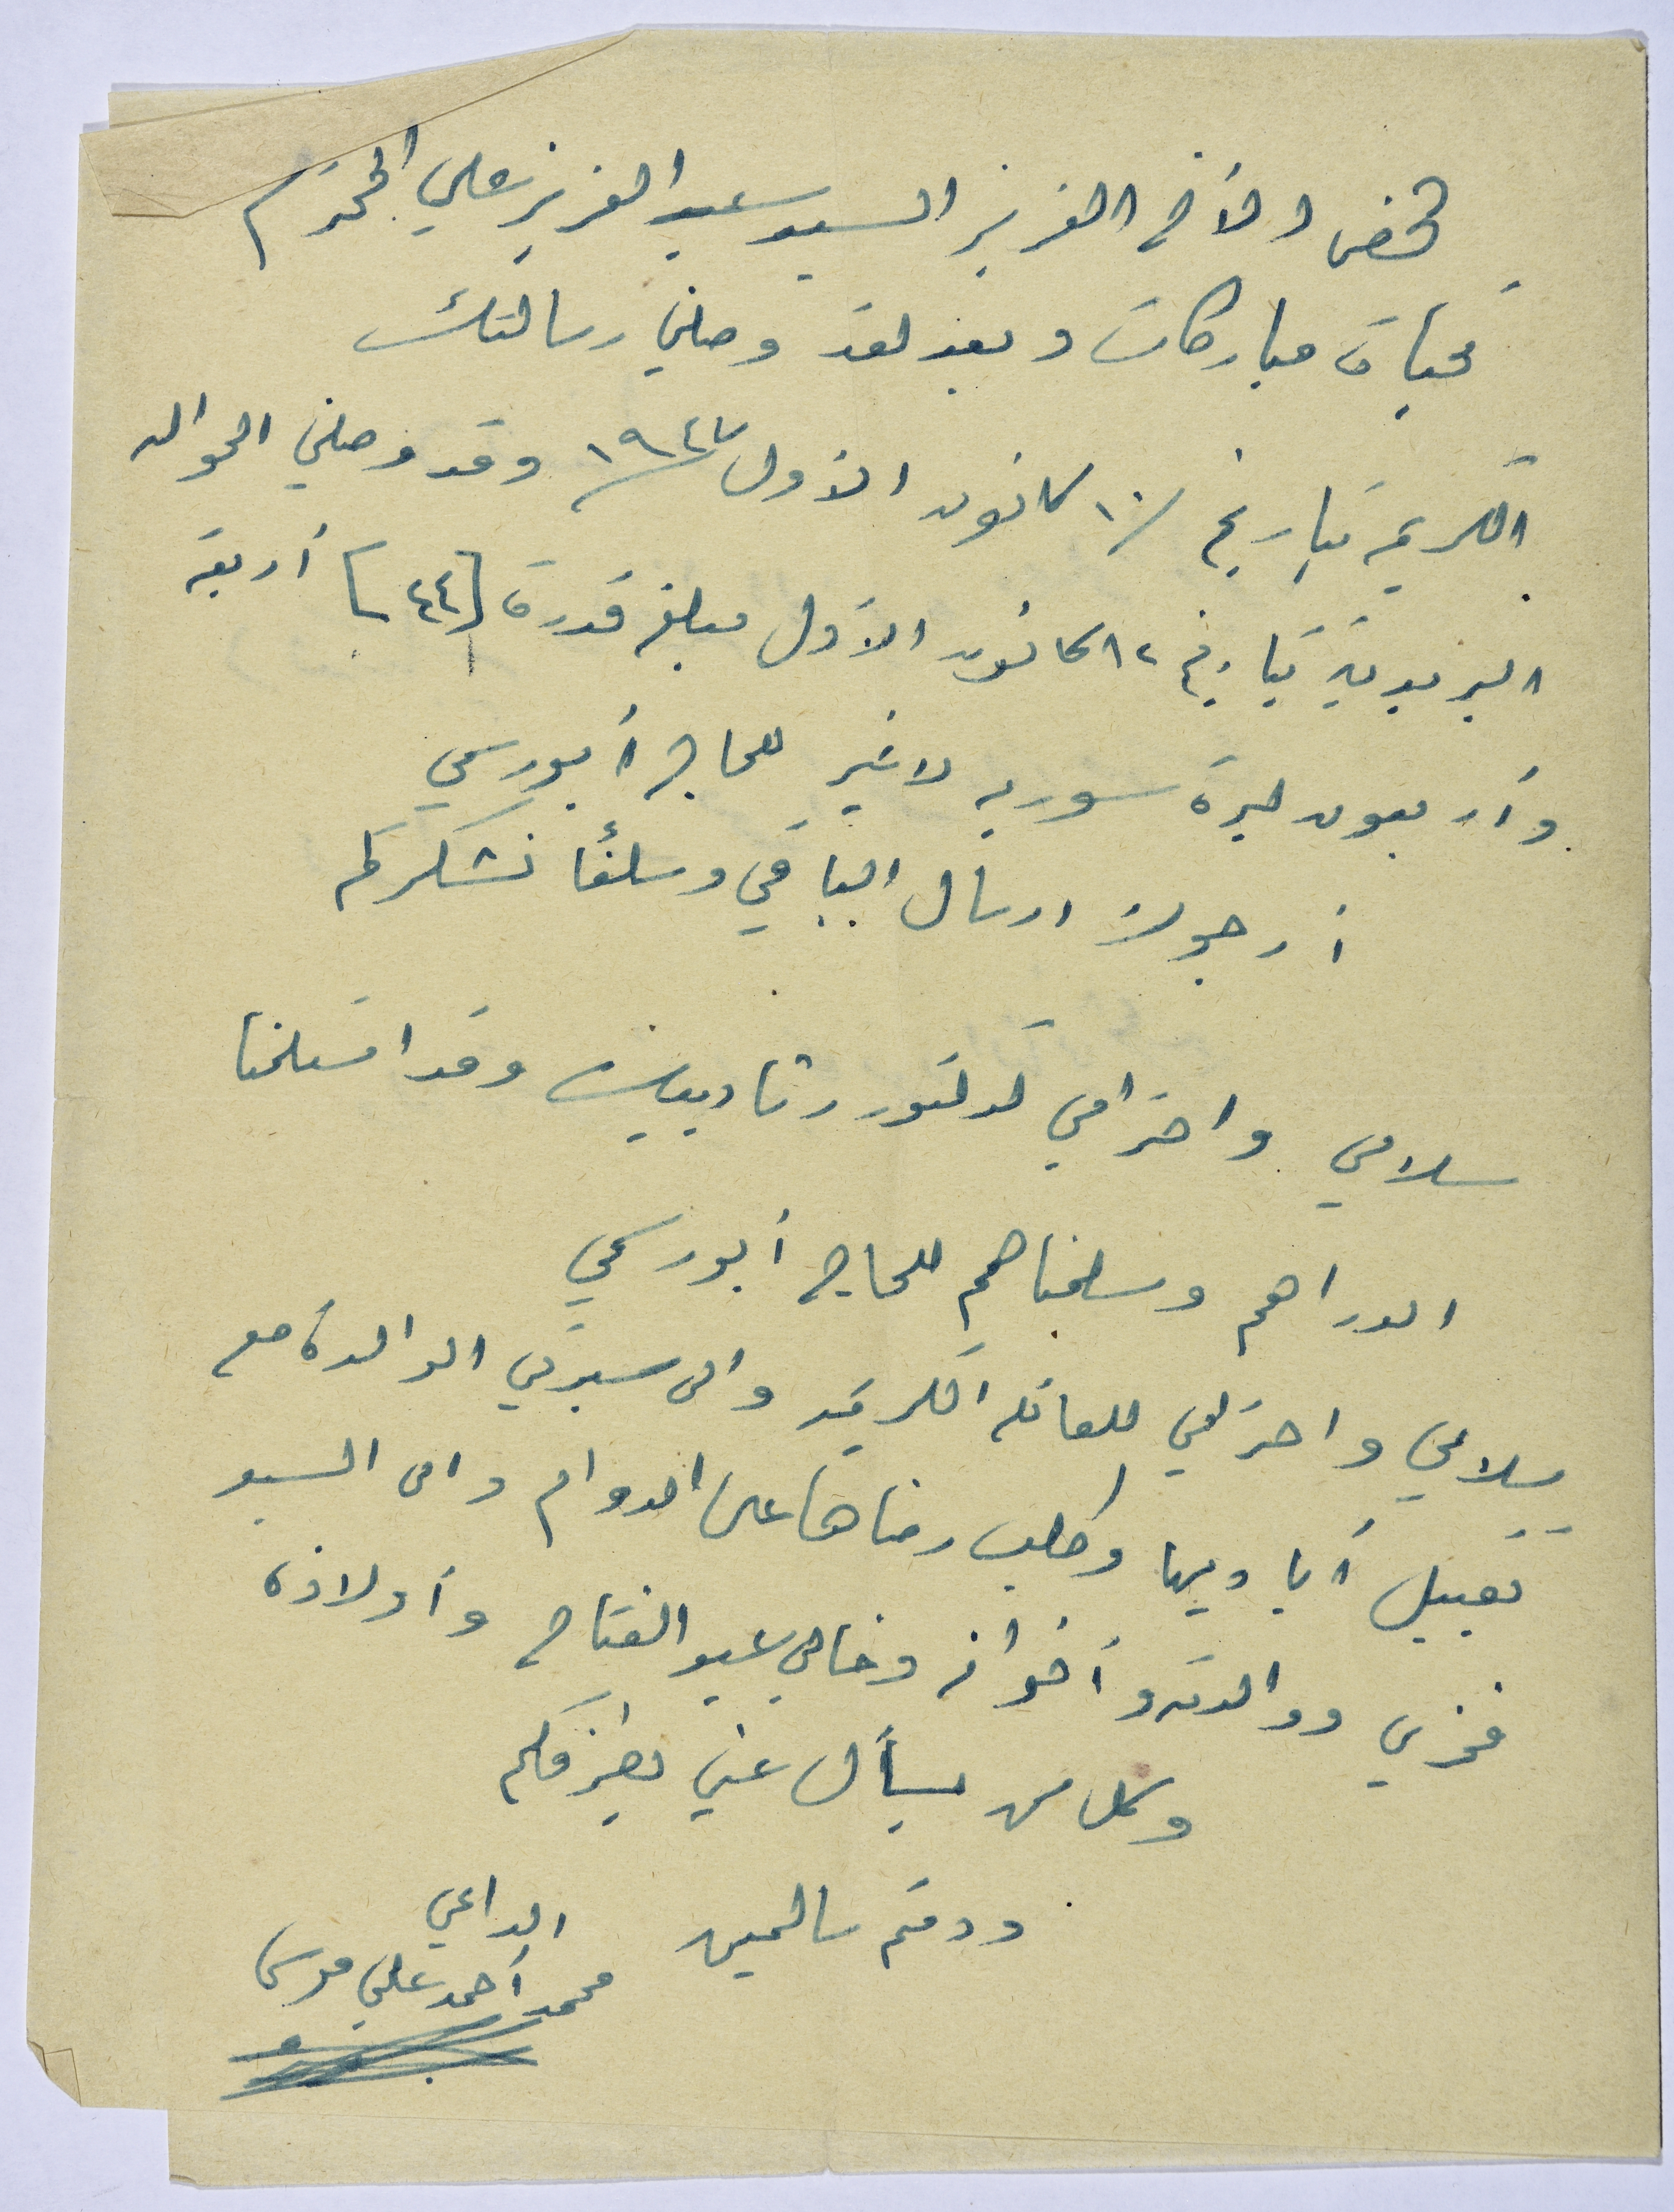 لحضرة الأخ العزيز السيد عبد العزيز علي المحترم
تحيات مباركات وبعد لقد وصلني رسالتك
الكريمة تاريخ /١٠ كانون الأول ١٩٤٧ وقد وصلني الحواله
البريدية تاريخ ١٢ كانون الأول مبلغ قدرة [٤٤] أربعة
وأربعون ليرة سوريه لاغير للحاج أبو رسمي
أرجوك ارسال الباقي وسلفًا نشكركم
سلامي واحترامي لدكتور وقد استلمنا
الدراهم وسلمناهم للحاج أبو رسمي
سلامي واحترامي للعائله الكريمه والى سيدتي الوالدة مع
تقبيل أياديها وطلب رضاها على الدوام والى السيد
فخري ووالدته وأخوانه وخالي عبد الفتاح وأولاده
وكل من يسأل عني بطرفكم
ودمتم سالمين
الداعي
محمد أحمد علي موسى